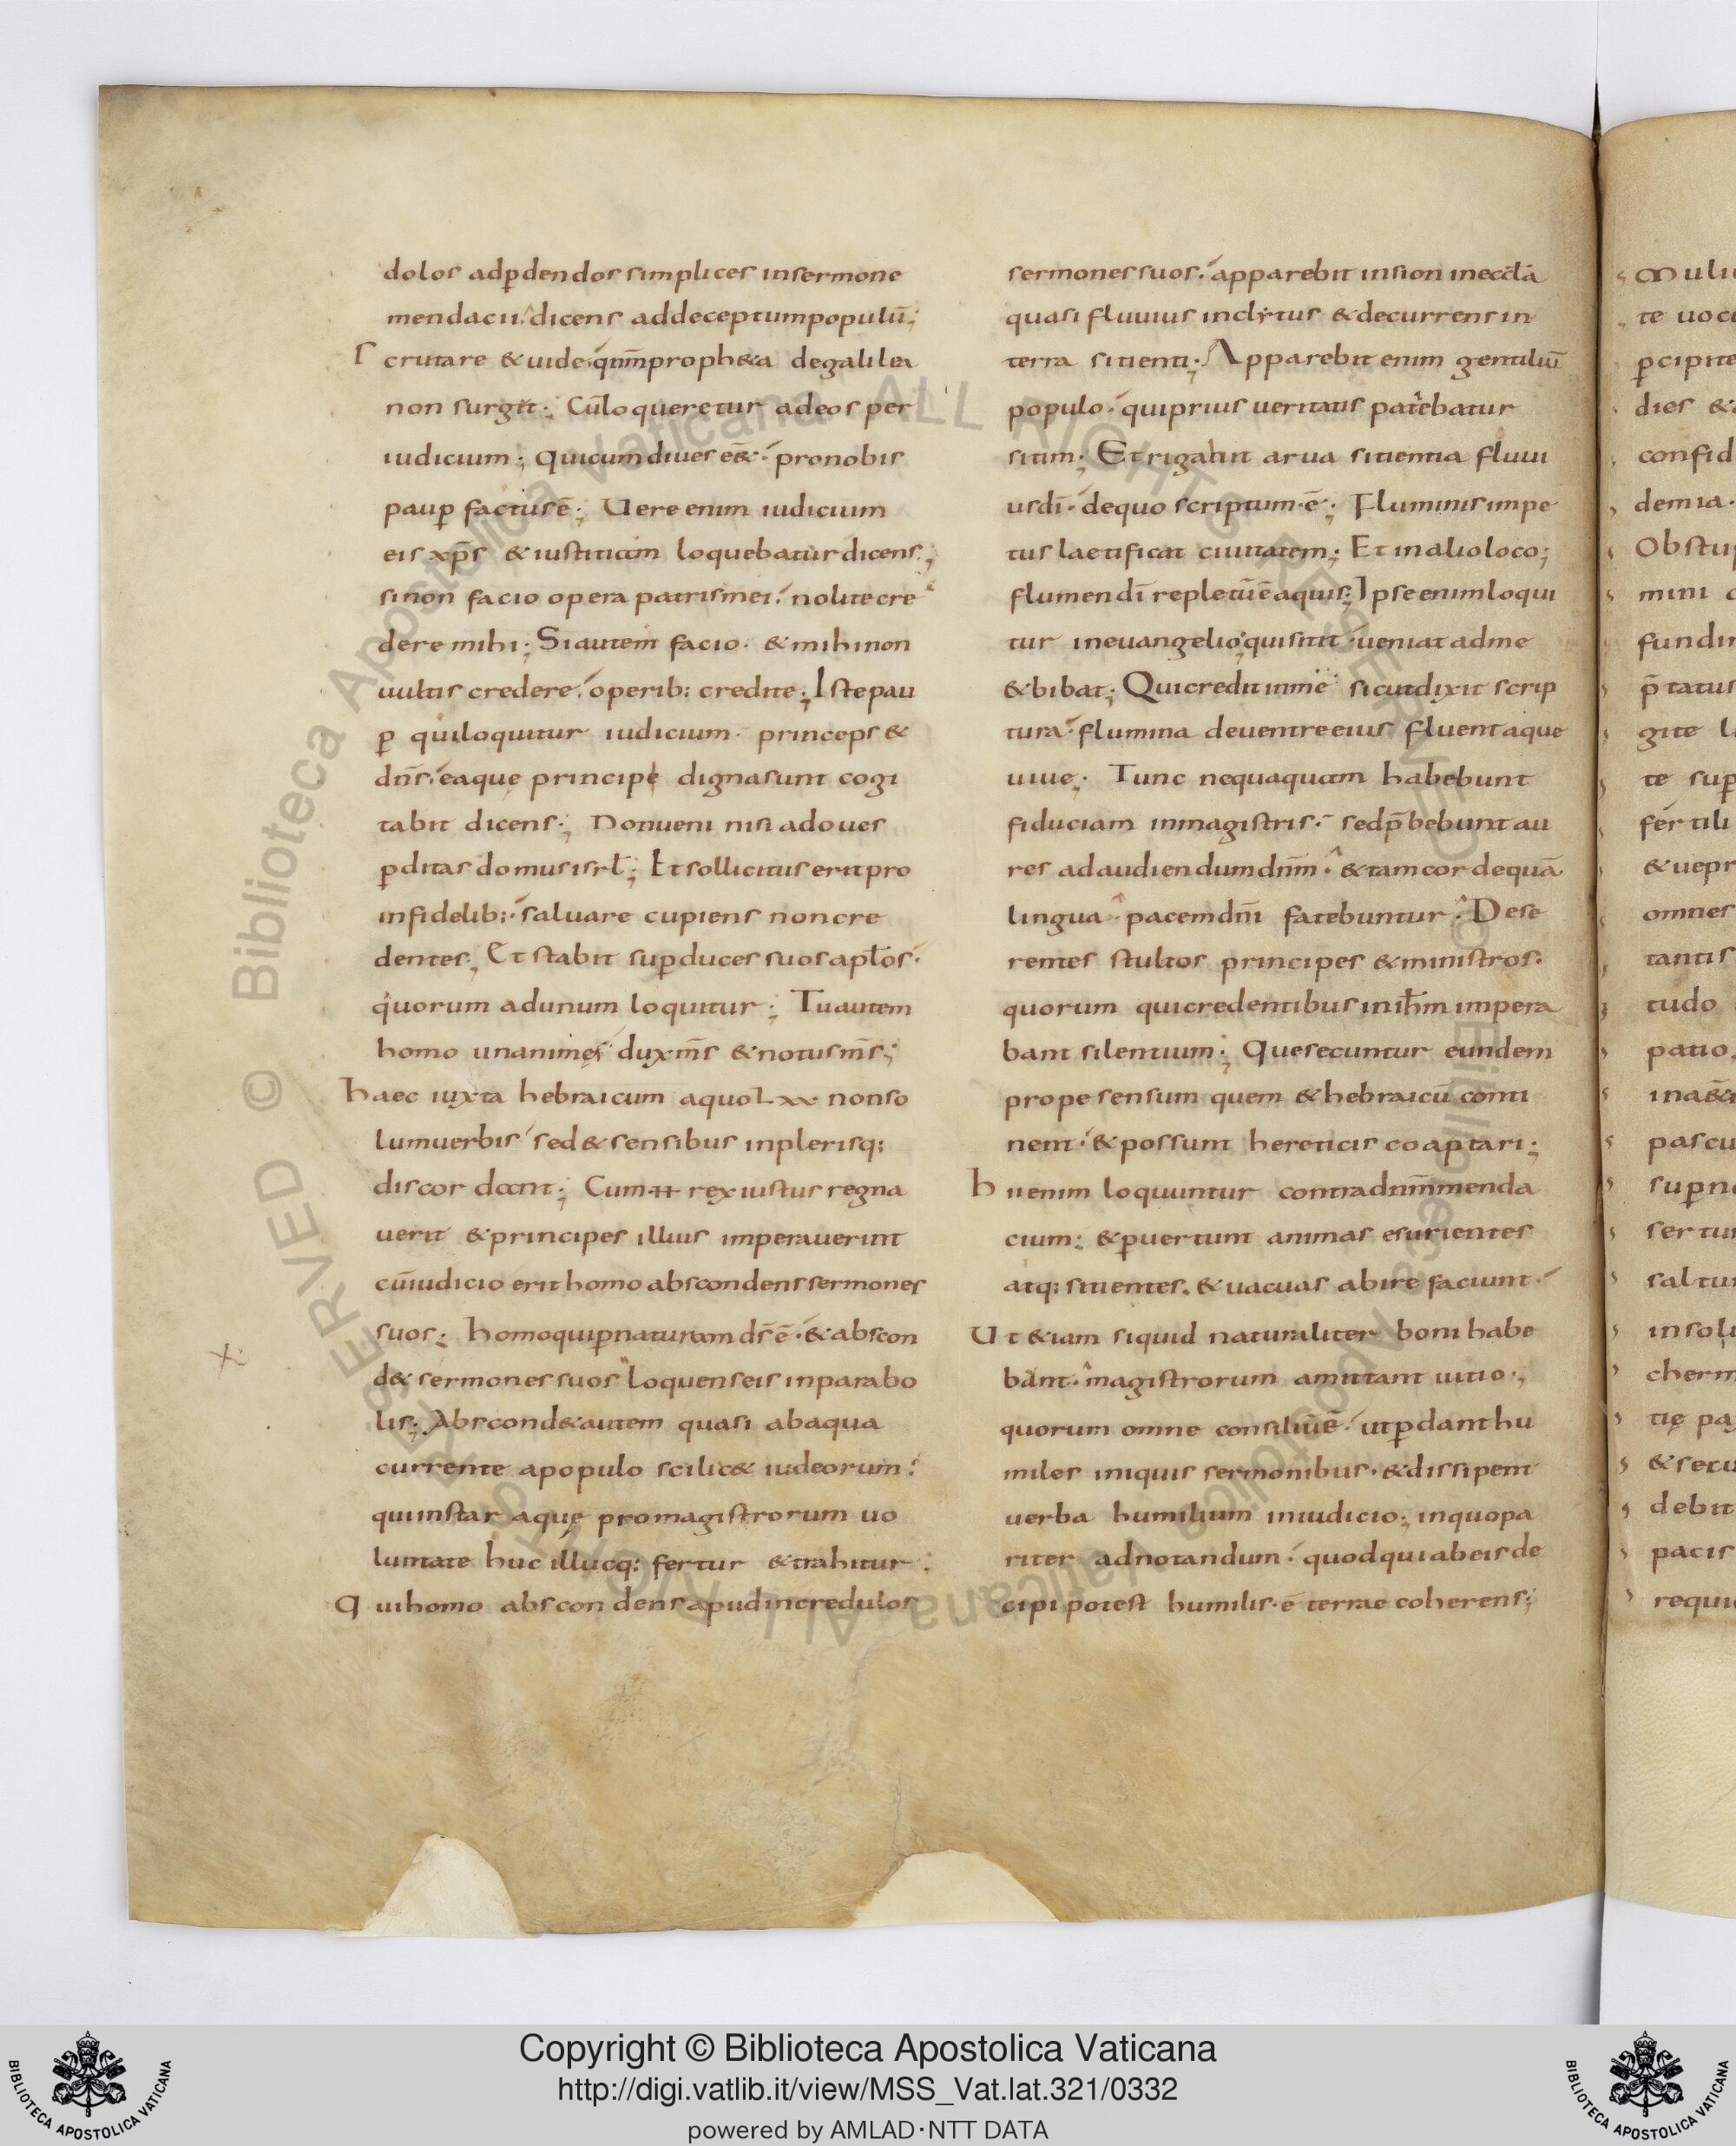 dolos adp̄dendos simplices insermone
mendacii. dicens addeceptumpopulū;
Scrutare &uide. qm̄proph&a degalilea
non surgit; Cūloqueretur adeos per
iudicium; quicumdiues ēē&. pronobis
paup̄ factusē; Uere enim iudicium
eis xp̄s &iustitiam loquebaturdicens;
sinon facio opera patrismei. nolitecre
dere mihi; Siautem facio. &mihinon
uultis credere. operib: credite; Istepau
p̄ quiloquitur iudicium. princeps&
dn̄s. eaque principe dignasunt cogi
tabit dicens; Nonueni nisi adoues
p̄ditas domusisrl̄; Et sollicitus erit pro
infidelib:. saluare cupiens noncre
dentes; Et stabit sup̄duces suos apl̄os.
quorum adunum loquitur; Tuautem
homo unanimęs duxm̄s &notusm̄s;
haec iuxta hebraicum aquo Lxx nonso
lumuerbis sed&sensibus inplerisq;
discordant; Cum rex iustus regna
uerit &principes illius imperauerint
cūiudicio erit homo abscondens sermones
suos; homoquip̄naturam ds̄ē. &abscon
d& sermones suos loquens eis inparabo
lis; Abscond&autem quasi abaqua
currente apopulo scilic& iudeorum.
quiinstar aquę promagistrorum uo
luntate huc illucq: fertur &trahitur;
quihomo abscondens apudincredulos
sermones suos. apparebit insion ineccl̄a
quasi fluuius inclytus &decurrens in
terra sitienti; Apparebit enim gentiliū
populo. quiprius ueritatis patiebatur
sitim; Et rigabit arua sitientia fluui
usdī. dequo scriptum.ē; Fluminis impe
tus laetificat ciuitatem; Et inalioloco;
flumendī repletūē aquis; Ipseenimloqui
tur ineuangelio; quisitit ueniat adme
&bibat; Quicreditinme sicutdixit scrip
tura. flumina deuentreeius fluentaque
uiue; Tunc nequaquam habebunt
fiduciam inmagistris. sedp̄bebunt au
res adaudiendumdnm̄. &tamcor dequā
lingua pacemdnī fatebuntur. Dese
rentes stultos principes &ministros.
quorum quicredentibus inihm̄ impera
bant silentium; Quesecuntur eundem
prope sensum quem &hebraicū conti
nent. &possunt hereticis coaptari;
hiienim loquuntur contradnm̄menda
cium; &p̄uertunt animas esurientes
atq: sitientes. &uacuas abire faciunt.
Ut &iam siquid naturaliter boni habe
bant. magistrorum amittant uitio;
quorum omne consiliūē. utp̄dant hu
miles iniquis sermonibus. &dissipent
uerba humilium iniudicio; inquopa
riter adnotandum. quodquiabeis de
cipi potest humilis.ē terrae coherens;
uoc
p̄cipite
dies
confid
demia.
mini
p̄tatus
gite
te sup
fertili
&uepr
omnes
tantis
tudo
patio
pascu
sup̄n
sertur
saltu
insol
cherm
tię pa
&secu
debit
pacis
requi
Copyright © Biblioteca Apostolica Vaticana
http://digi.vatlib.it/view/MSS_Vat.lat.321/0332
powered by AMLAD·NTT DATA
BIBLIOTECA APOSTOLICA VATICANA
BIBLIOTECA APOSTOLICA VATICANA